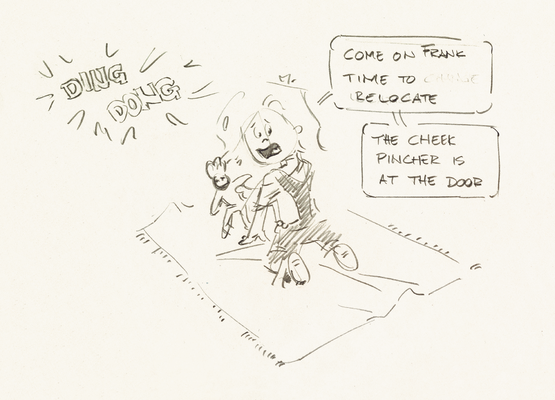 DING
DONG
COME ON FRANK
TIME TO
RELOCATE
THE CHEEK
PINCHER IS
AT THE DOOR